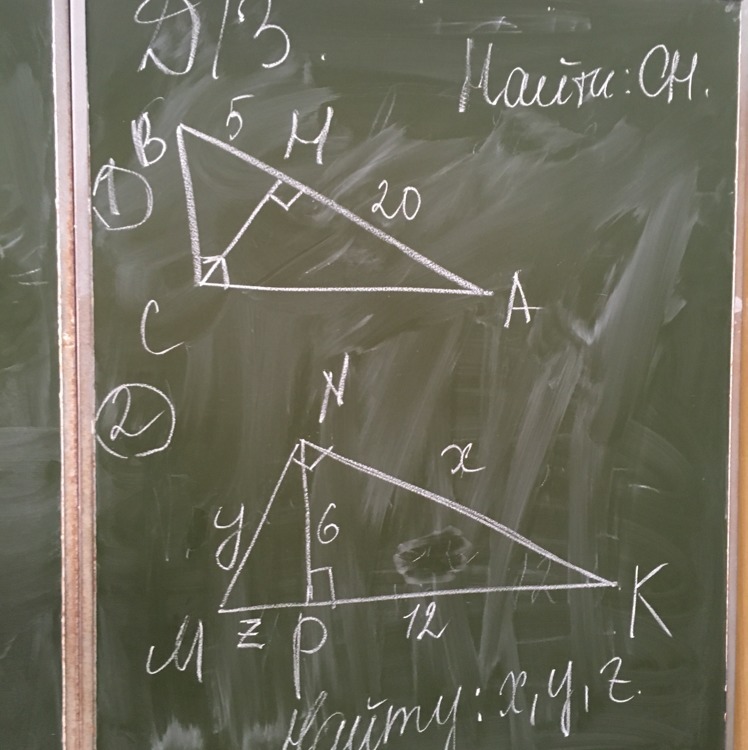 Д/З.
Найти: CH.
①
B 5 H
20
C A
②
N
y 6 x
M z P 12 K
Найти: x, y, z.